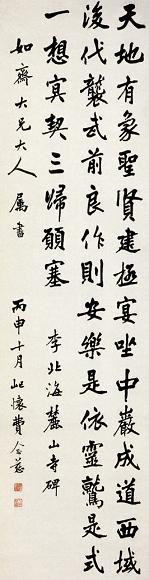 天地有象聖賢建極宴坐中巖成道西域
後代襲武前良作則安樂是依靈鷲是式
一想冥契三歸願塞
李北海麓山寺碑
如齋大兄大人屬書
丙申十月屺懷費念慈